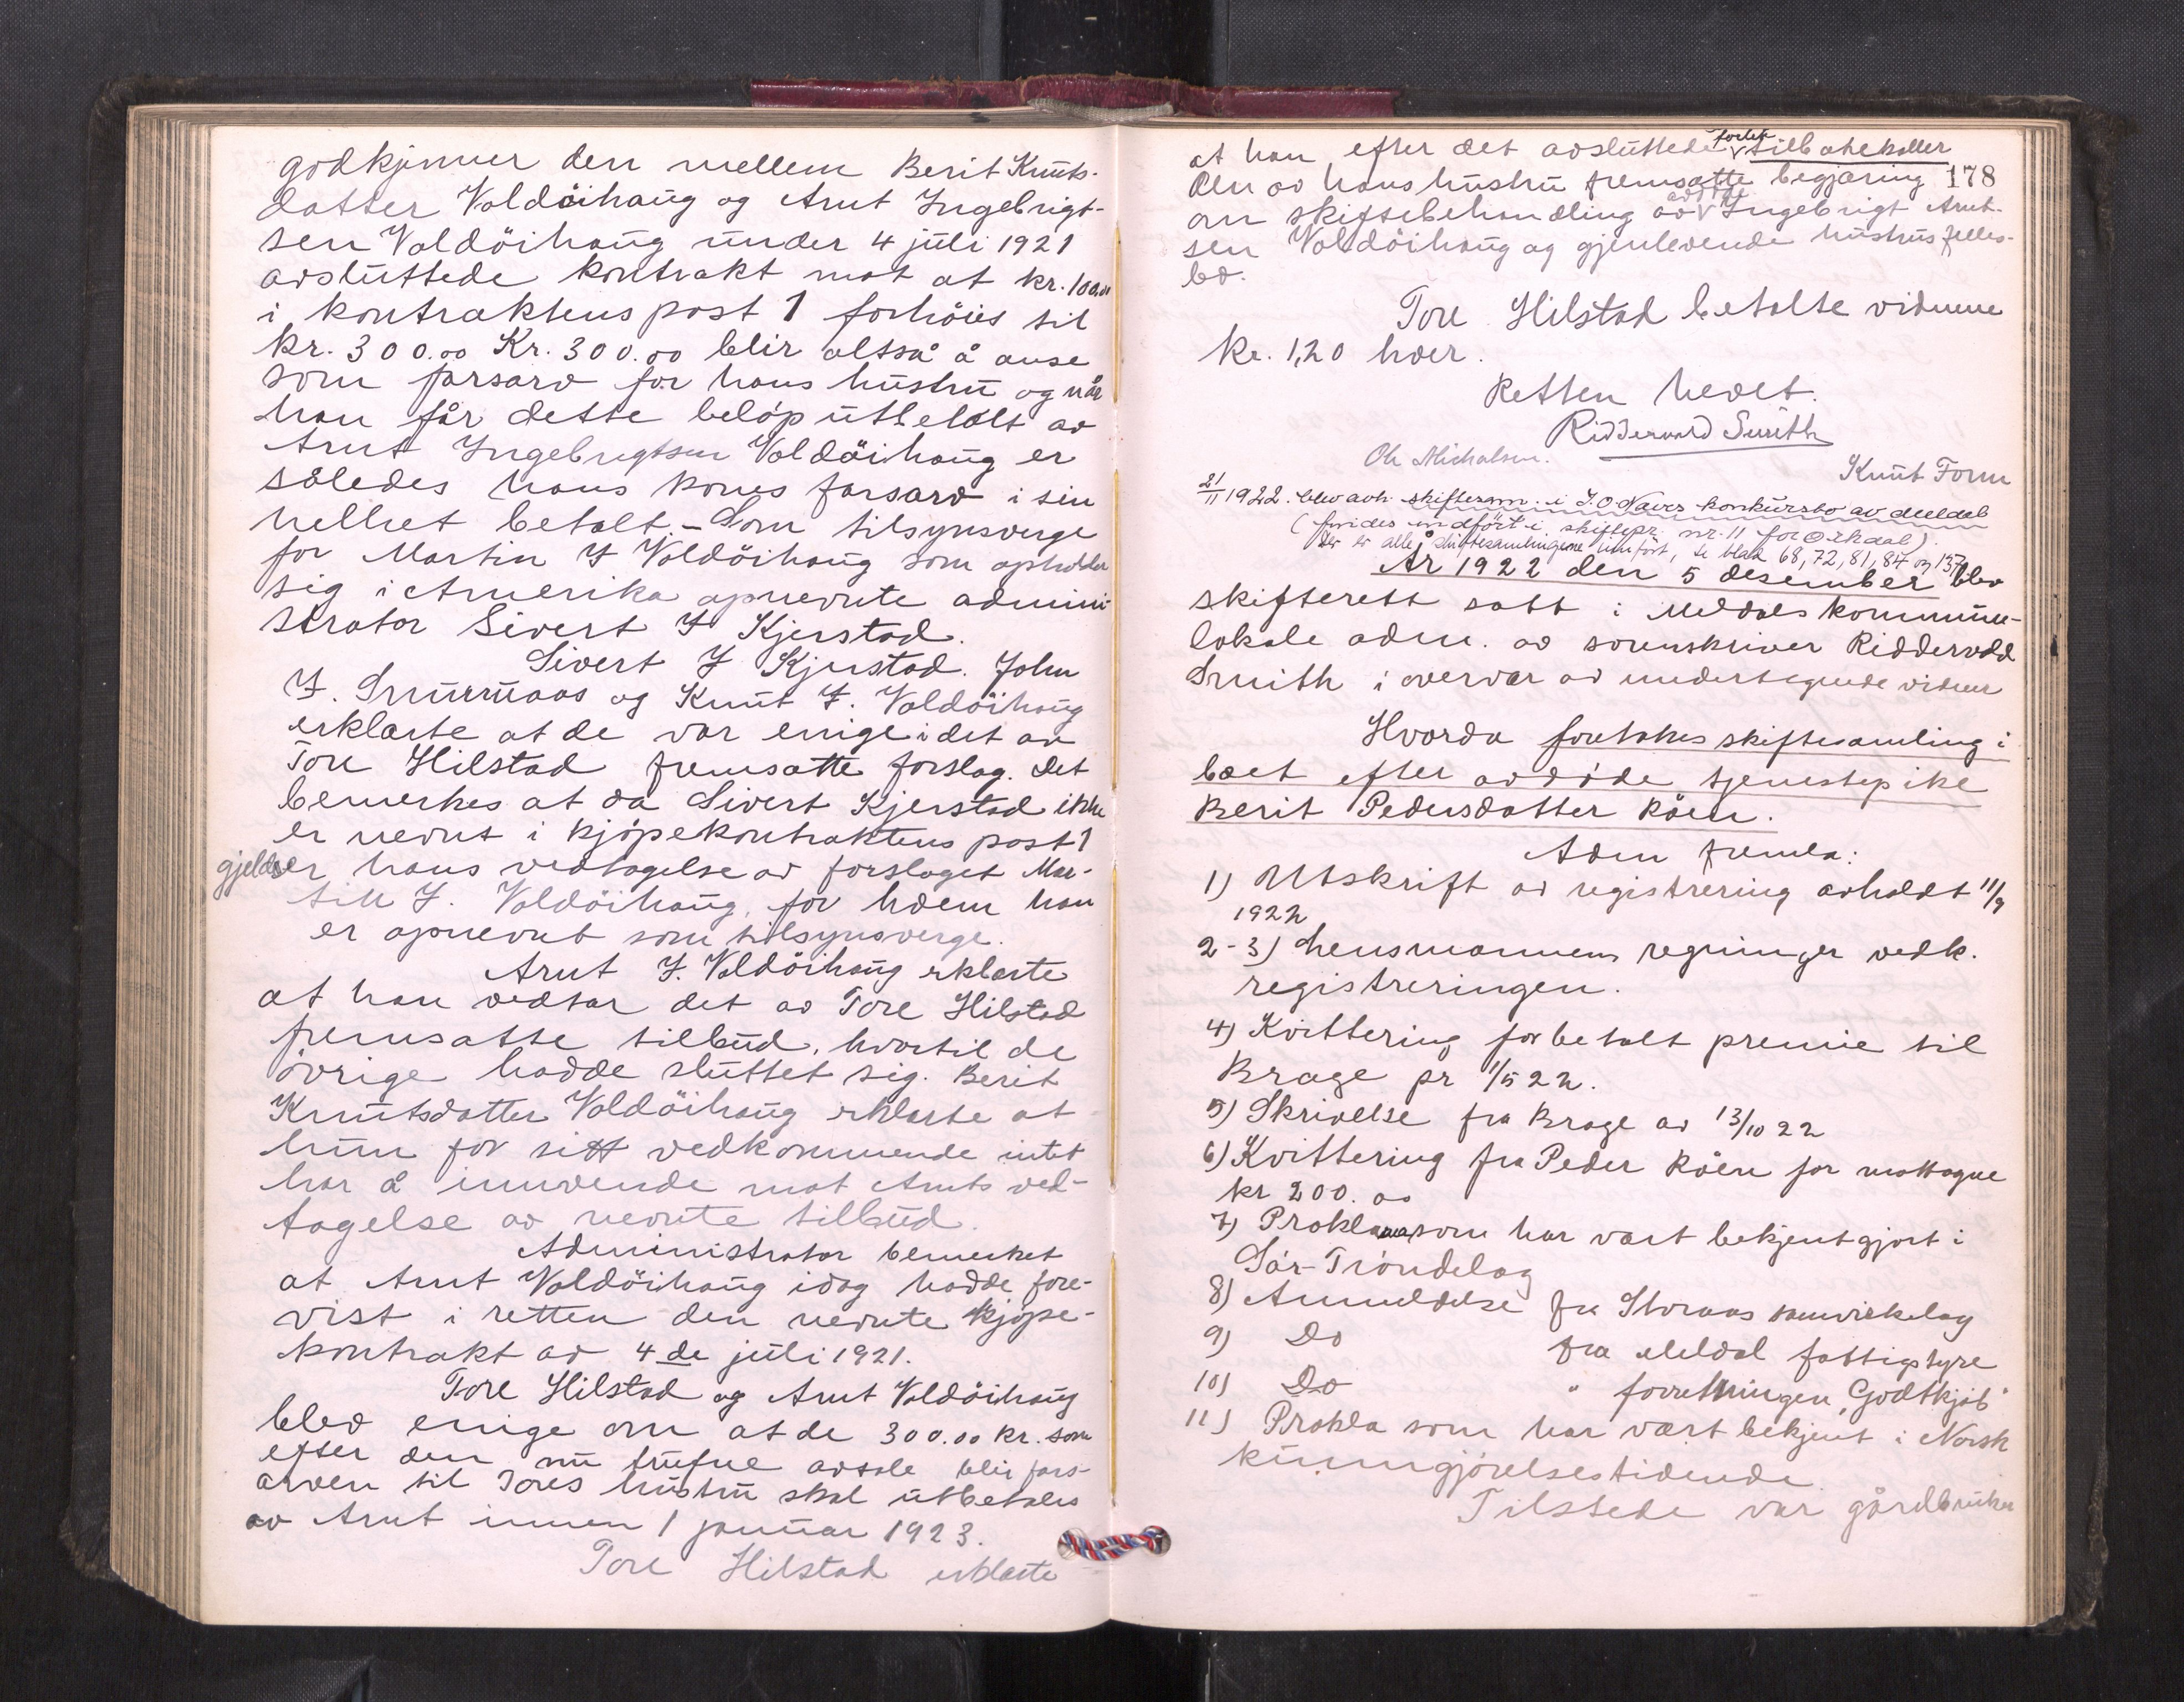 godkjenner den mellem Berit Knuts-
datter Voldöihaug og Arnt Ingebrigt-
sen Voldöihaug under 4 juli 1921
avsluttede kontrakt mot at kr. 100.00
i kontraktens post 1 forhöies til
kr. 300.00 Kr. 300.00 blir altså å anse
som farsarv for hans hustru og når
han får dette belöp utbetalt av
Arnt Ingebrigtsen Voldöihaug er
således hans kones farsarv i sin
helhet betalt. – Som tilsynsverge
for Martin I Voldöihaug som opholder
sig i Amerika opnevnte admini-
strator Sivert I Kjerstad.
Sivert I Kjerstad. John
I. Snurruaas og Knut I. Voldöihaug
erklærte at de var enige i det av
Tore Hilstad fremsatte forslag. Det
bemerkes at da Sivert Kjerstad ikke
er nevnt i kjöpekontraktens post 1
gjelder hans vedtagelse av forslaget Mar-
tin I. Voldöihaug, for hvem han
er opnevnt som tilsynsverge.
Arnt I. Voldöihaug erklærte
at han vedtar det av Tore Hilstad
fremsatte tilbud, hvortil de
övrige hadde sluttet sig. Berit
Knutsdatter Voldöihaug erklærte at
hun for sitt vedkommende intet
har å innvende mot Arnts ved-
tagelse av nevnte tilbud.
Administrator bemerket
at Arnt Voldöihaug idag hadde fore-
vist i retten den nevnte kjöpe-
kontrakt av 4de juli 1921.
Tore Hilstad og Arnt Voldöihaug
blev enige om at de 300.00 kr. som
efter den nu trufne avtale blir fars-
arven til Tores hustru skal utbetales
av Arnt innen 1 januar 1923.
Tore Hilstad erklærte
at han efter det avsluttede forlik tilbakekaller
den av hans hustru fremsatte begjæring 178
om skiftebehandling av avdöde Ingebrigt Arnt-
sen Voldöihaug og gjenlevende hustrus felles-
bo.
Tore Hilstad betalte vidnene
kr. 1,20 hver.
Retten hevet.
Riddervold Smith
Ole Michalsen. Knut Form
21/11 1922. blev avh. skiftesam. i J. O. Naves konkursbo av Meldal
(findes indfört i skiftepr. nr. 11 for Orkdal).
Der er alle skiftesamlingene innfört, se blad 68, 72, 81, 84 og 137
År 1922 den 5 desember blev
skifterett satt i Meldals kommune-
lokale adm. av sorenskriver Riddervold
Smith i overvær av undertegnede vidner
Hvorda foretokes skiftesamling i
boet efter avdöde tjenestepike
Berit Pedersdatter Röen.
Adm fremla:
1) Utskrift av registrering avholdt 11/9
1922
2-3) Lensmannens regninger vedk.
registreringen.
4) Kvittering for betalt premie til
Brage pr 1/5 22.
5) Skrivelse fra Brage av 13/10 22
6) Kvittering fra Peder Röen for mottagne
kr 200.00
7) Proklama som har vært bekjentgjort i
Sör-Tröndelag
8) Anmeldelse fra Storaas samvirkelag
9) Do fra Meldal fattigstyre
10) Do " forretningen "Godtkjöb"
11) Prokla som har vært bekjent i Norsk
kunngjörelsestidende.
Tilstede var gårdbruker